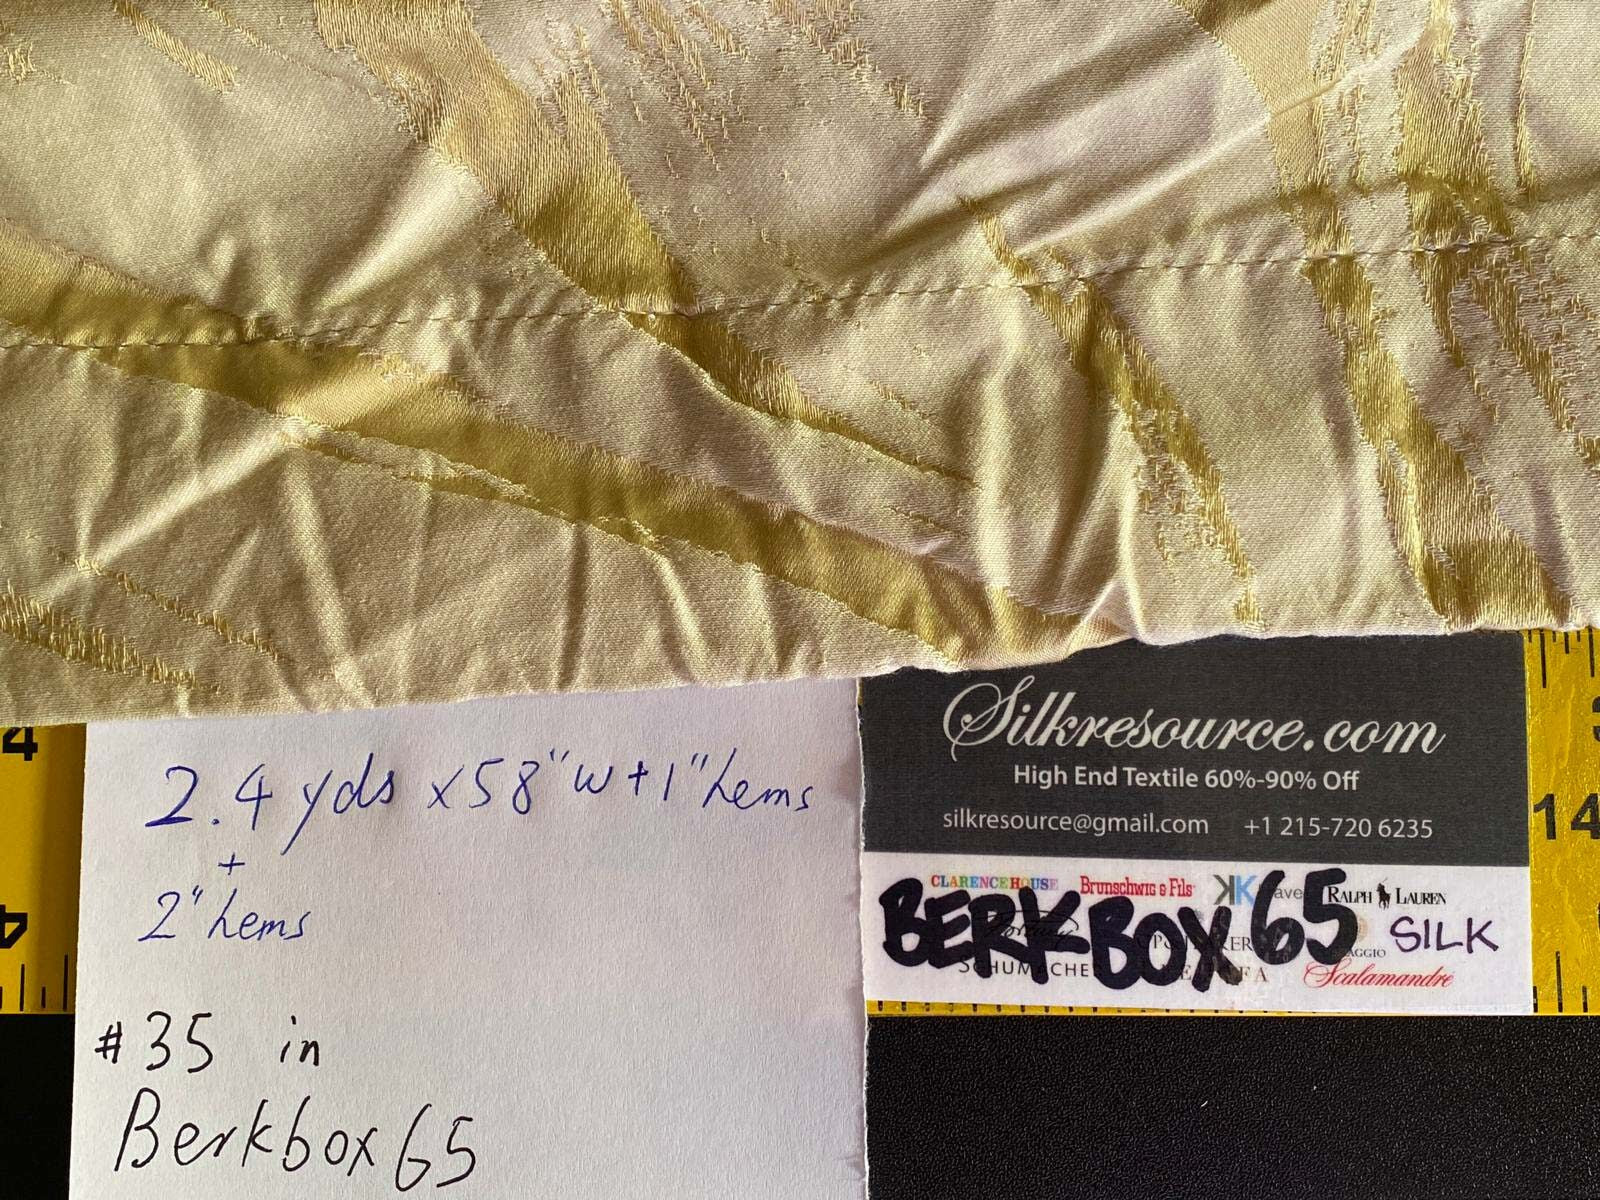 2.4 yds x 58" w + 1" hems
+
2" hems
#35 in
Berkbox 65
Silkresource.com
High End Textile 60%-90% Off
silkresource@gmail.com +1 215-720 6235
CLARENCE HOUSE Brunschwig & Fils KK RALPH LAUREN
BERKBOX 65 SILK
SCHUMACHE Scalamandré
4
4
14